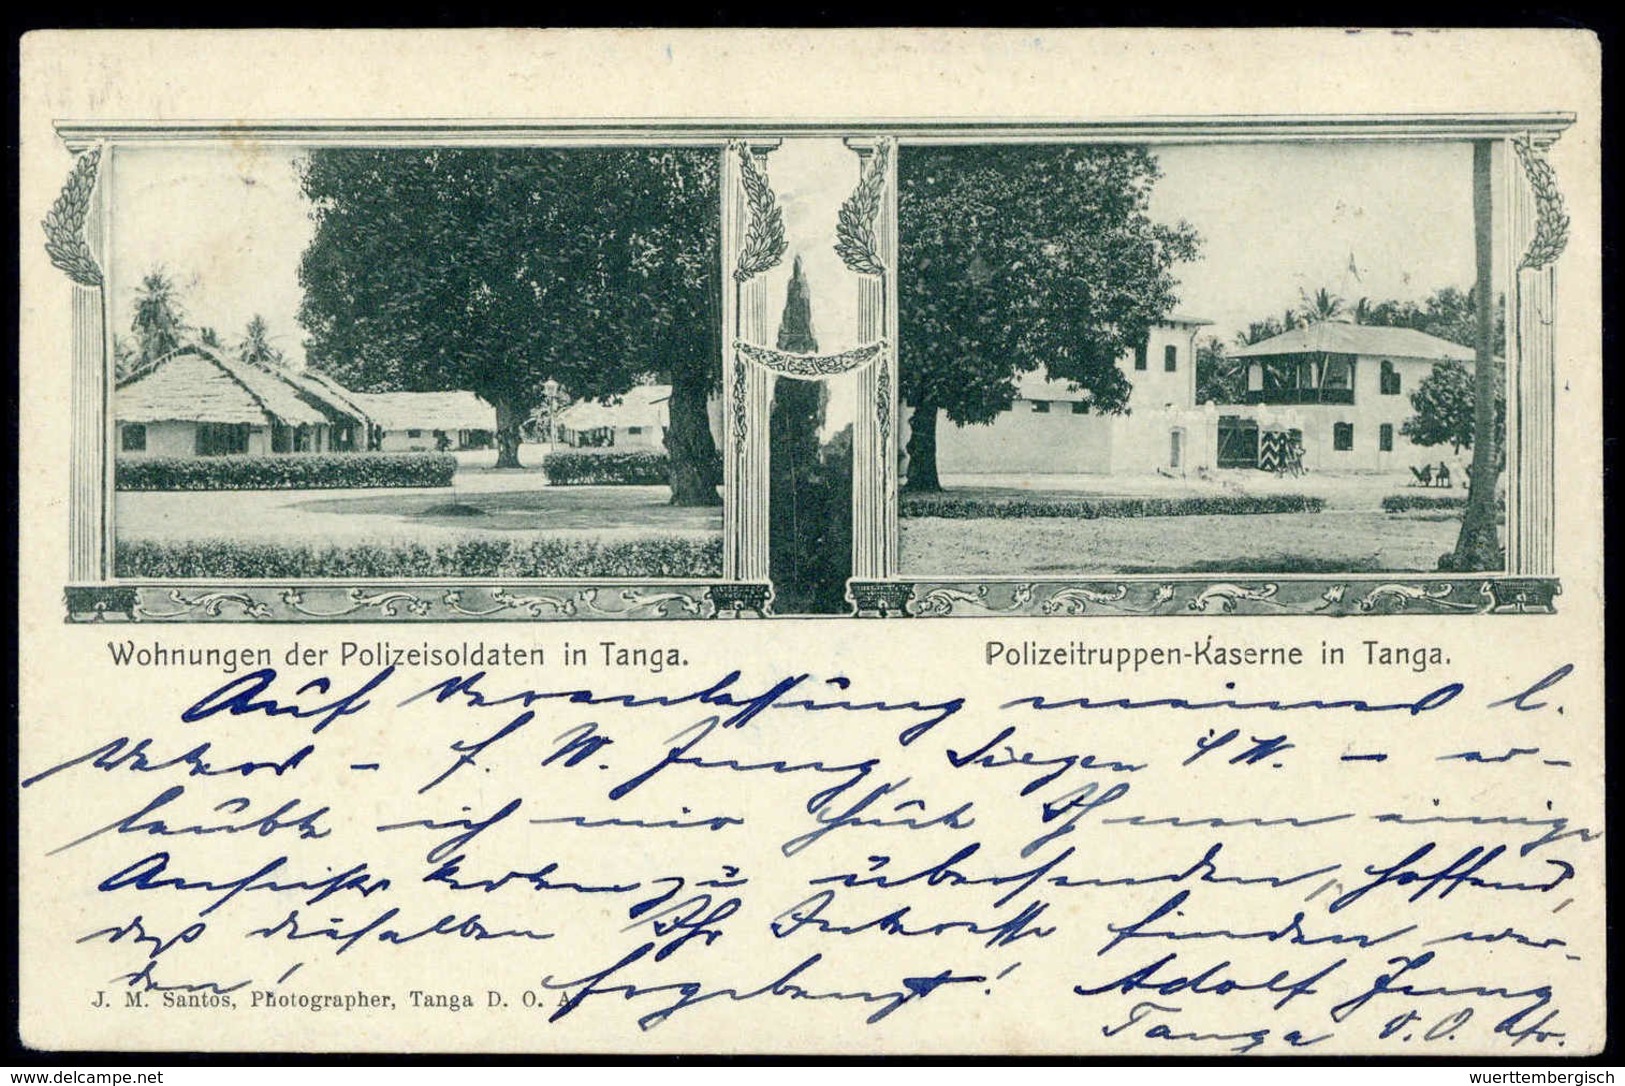 Wohnungen der Polizeisoldaten in Tanga.
Polizeitruppen-Kaserne in Tanga.
Auf Veranlassung meines l.
Vaters – f. W. Jung, Siegen i/W. – er-
laube ich mir heute Ihnen einige
Ansichtskarten zu übersenden, hoffend,
daß dieselben Ihr Interesse finden wer-
den! Ergebenst! Adolf Jung
J. M. Santos, Photographer, Tanga D. O. A.
Tanga D. O. Afr.
delcampe.net
wuerttembergisch